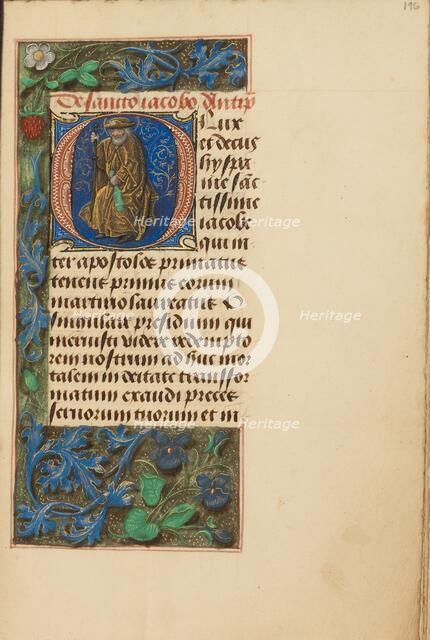 196
De sancto iacobo Antip
O Lux
et decus
hyspa
nie sāc
tissime
iacobe
qui in
ter apostolos primatū
tenens primus eorum
martirio laureatus O
singulare presidium qui
meruisti videre redempto
rem nostrum ad huc mor
talem in deitate transfor
matum exaudi preces
seruorum tuorum et in
Heritage
Heritage
Heritage
Heritage
Heritage